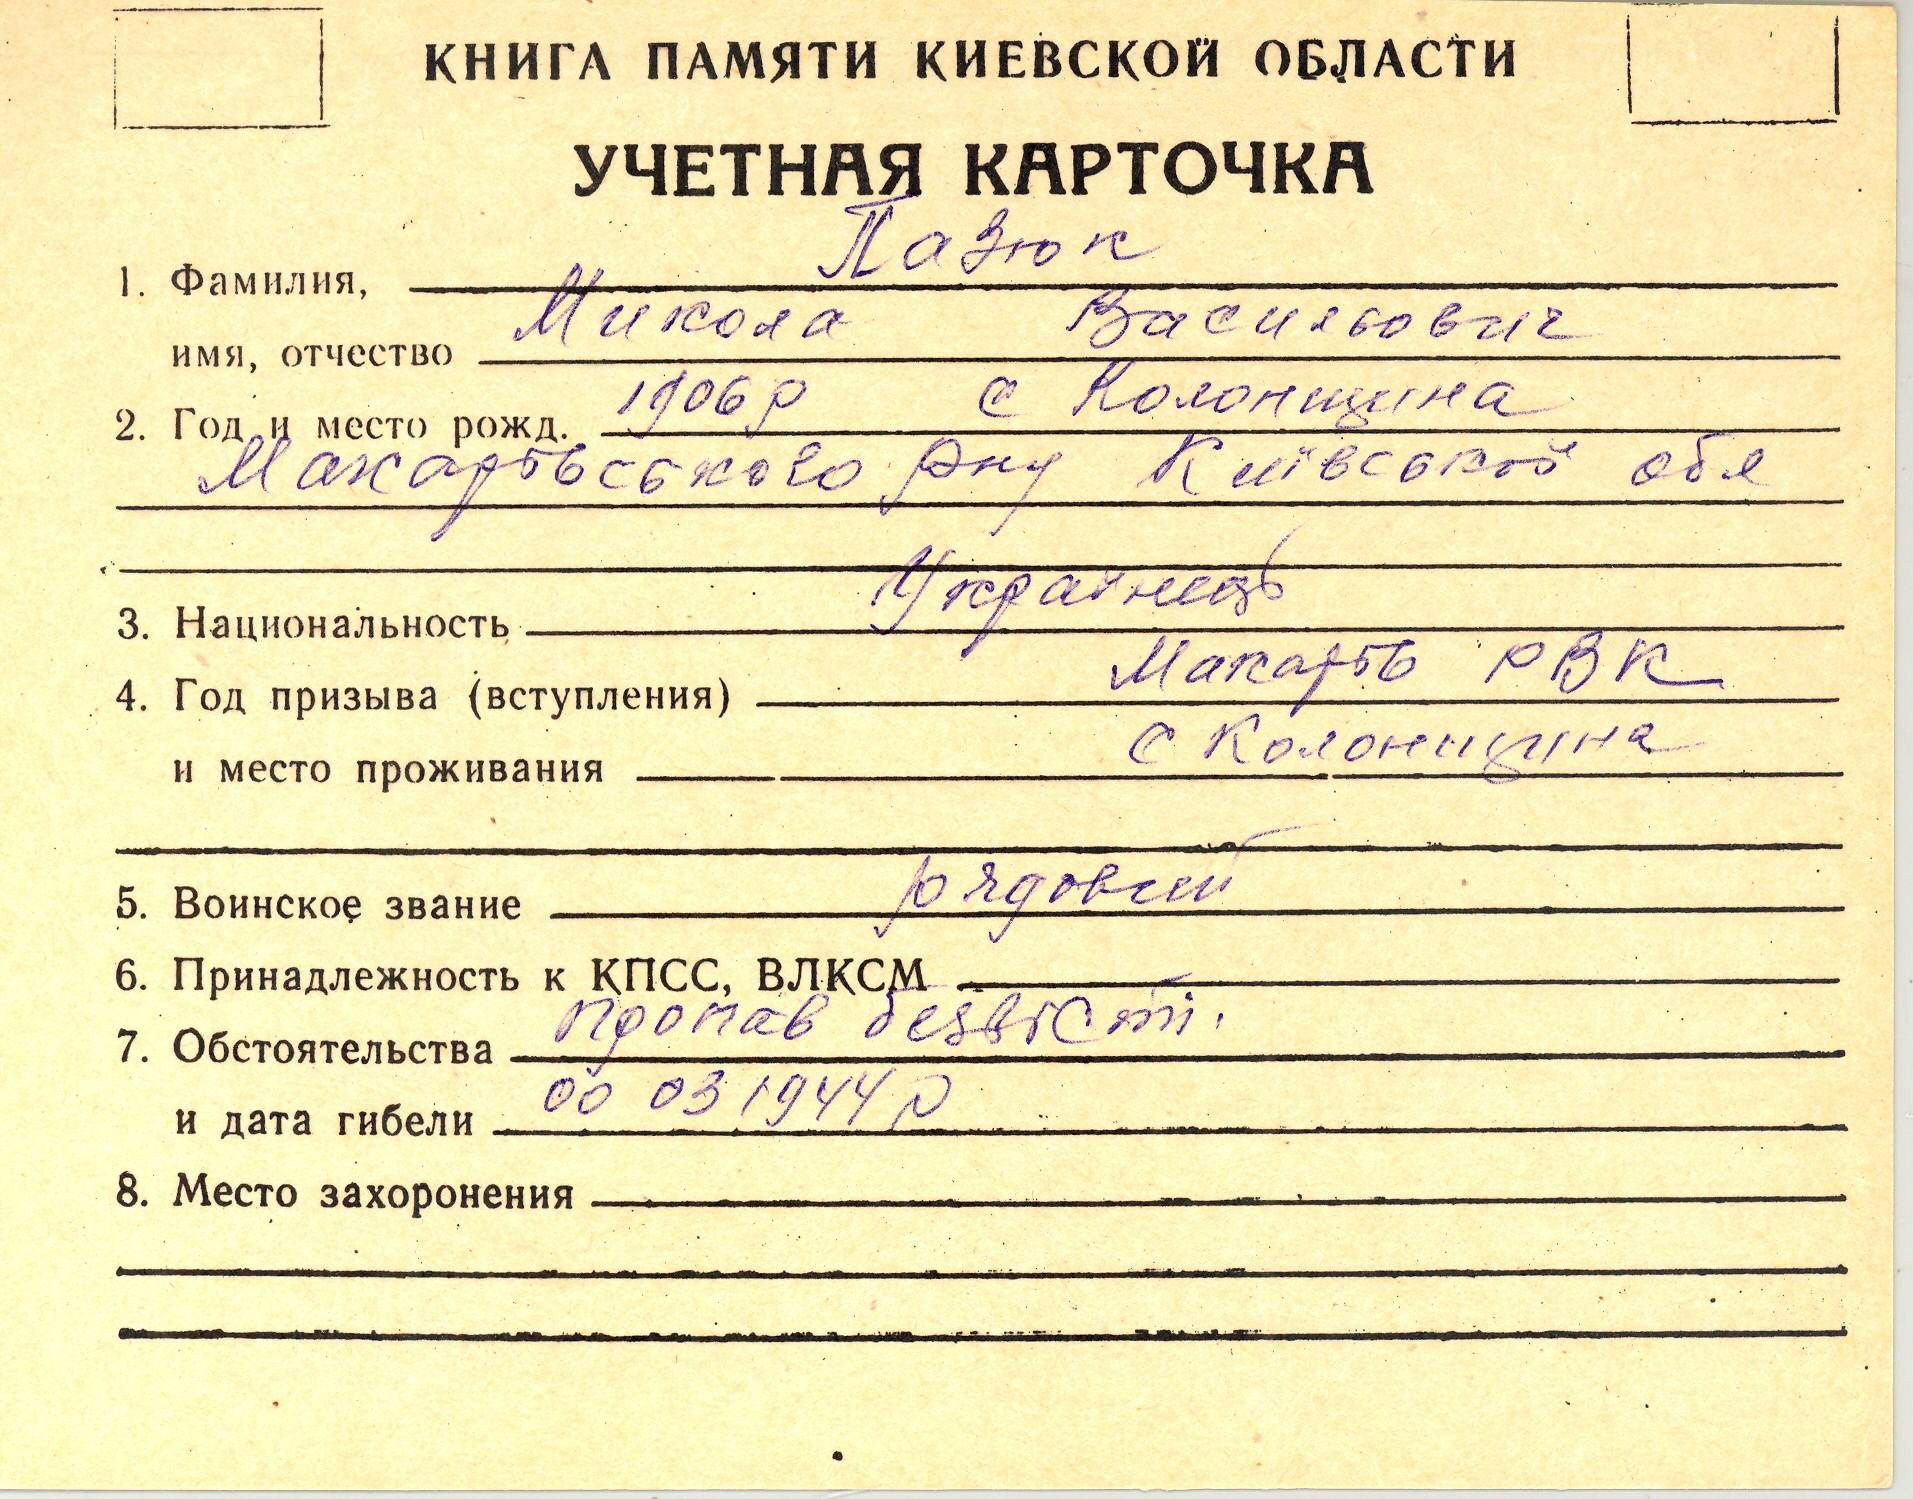 КНИГА ПАМЯТИ КИЕВСКОЙ ОБЛАСТИ
УЧЕТНАЯ КАРТОЧКА
1. Фамилия, Пазюк
имя, отчество Микола Васильович
2. Год и место рожд. 1906р с Колонщина
Макарівського рну Київської обл
3. Национальность Українець
4. Год призыва (вступления) Макарів РВК
и место проживания с Колонщина
5. Воинское звание рядовий
6. Принадлежность к КПСС, ВЛКСМ
7. Обстоятельства пропав безвісті.
и дата гибели 00 03 1944р
8. Место захоронения